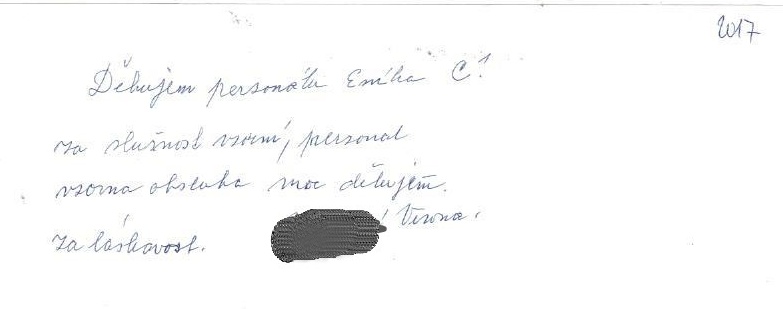 2017
Děkujem personálu Emíka C!
za slušnost vzorní, personal
vzorna obsluha moc děkujem.
za láskavost. Verona.